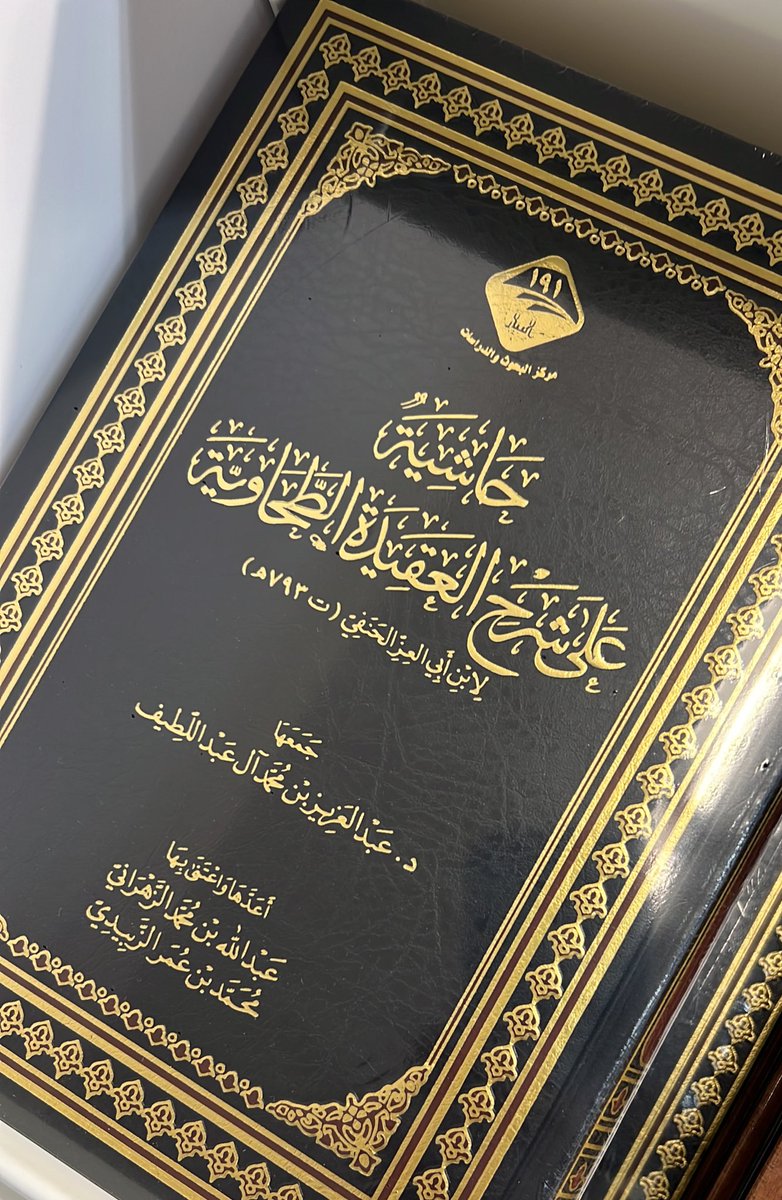 ١٩١
البيان
مركز البحوث والدراسات
حَاشِيَةٌ
عَلَى شَرْحِ العَقِيدَةِ الطَّحَاوِيَّةِ
لِابْنِ أَبِي العِزِّ الحَنَفِيِّ (ت ٧٩٣هـ)
جَمَعَهَا
د. عَبْدُ العَزِيزِ بْنُ مُحَمَّدٍ آلُ عَبْدِ اللَّطِيفِ
أَعَدَّهَا وَاعْتَنَى بِهَا
عَبْدُ اللهِ بْنُ مُحَمَّدٍ الزَّهْرَانِيُّ
مُحَمَّدُ بْنُ عُمَرَ الزُّبِيدِيُّ